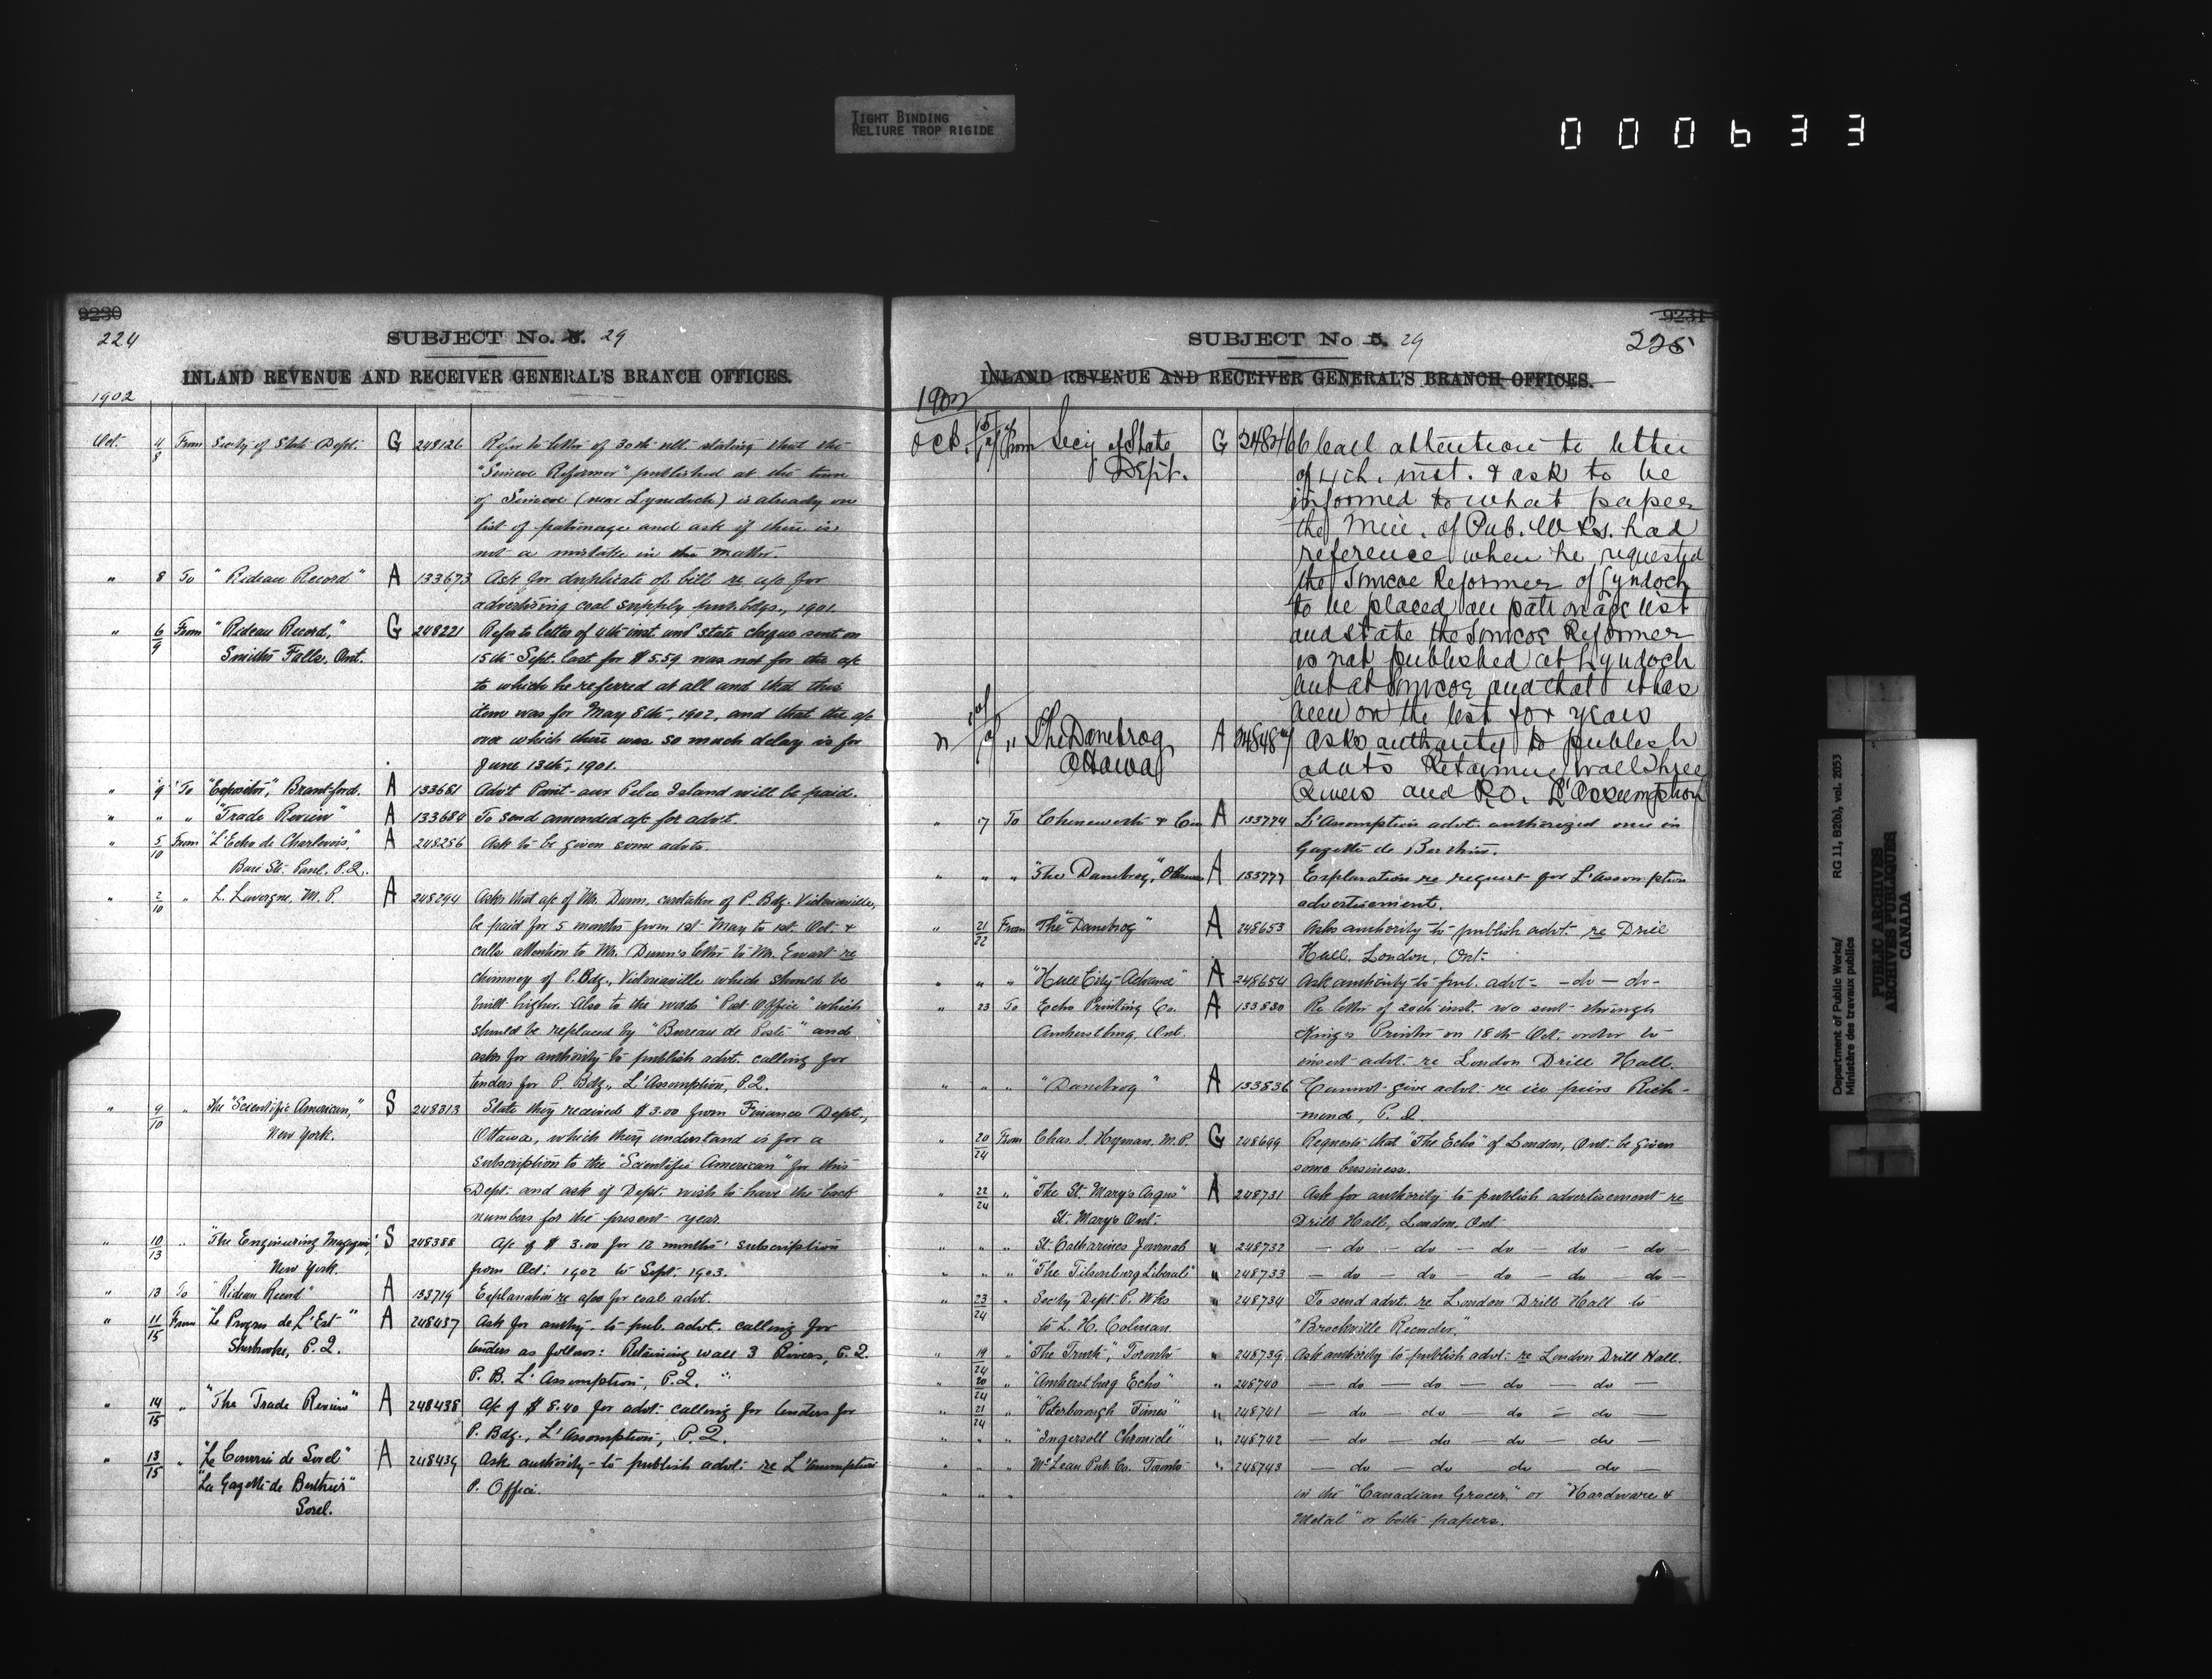 TIGHT BINDING
RELIURE TROP RIGIDE
000633
9230
224
SUBJECT No. 5. 29
INLAND REVENUE AND RECEIVER GENERAL'S BRANCH OFFICES.
1902
Oct. 4/8 From Sec'ty of State Dept. G 248126 Refer to letter of 30th ult. stating that the
"Simcoe Reformer" published at the town
of Simcoe (near Lyndoch) is already on
list of patronage and ask if there is
not a mistake in the matter.
" 8 To "Rideau Record" A 133673 Ask for duplicate of bill re a/c for
advertising coal supply pub. bldgs., 1901.
" 6/9 From "Rideau Record," G 248221 Refer to letter of 4th inst. and state cheque sent on
Smiths Falls, Ont. 15th Sept. last for $5.59 was not for the a/c
to which he referred at all and that this
item was for May 8th, 1902, and that the a/c
over which there was so much delay is for
June 13th, 1901.
" 9 To "Expositor", Brantford. A 133681 Adv't Point-aux Pelee Island will be paid.
" " " "Trade Review" A 133684 To send amended a/c for advt.
" 5/10 From "L'Echo de Charlevoix," A 248286 Ask to be given some advts.
Baie St. Paul, P.Q.
" 2/10 " L. Lavergne, M.P. A 248294 Asks that a/c of Mr. Dunn, caretaker of P. Bdg. Victoriaville,
be paid for 5 months from 1st May to 1st Oct. &
calls attention to Mr. Dunn's letter to Mr. Ewart re
chimney of P. Bdg., Victoriaville which should be
built higher. Also to the words "Post Office" which
should be replaced by "Bureau de Poste" and
asks for authority to publish advt. calling for
tenders for P. Bdg., L'Assomption, P.Q.
" 9/10 " The "Scientific American," S 248313 State they received $3.00 from Finance Dept.,
New York. Ottawa, which they understand is for a
subscription to the "Scientific American" for this
Dept. and ask if Dept. wish to have the back
numbers for the present year.
" 10/13 " "The Engineering Magazine," S 248388 A/c of $3.00 for 12 months' subscription
New York. from Oct. 1902 to Sept. 1903.
" 13 To "Rideau Record" A 133719 Explanation re a/cs for coal advt.
" 11/15 From "Le Progres de L'Est" A 248437 Ask for authy. to pub. advt. calling for
Sherbrooke, P.Q. tenders as follows: Retaining wall 3 Rivers, P.Q.
P. B. L'Assomption, P.Q.
" 14/15 " "The Trade Review" A 248438 A/c of $8.40 for advt. calling for tenders for
P. Bdg., L'Assomption, P.Q.
" 13/15 " "Le Courrier de Sorel" A 248439 Ask authority to publish advt. re L'Assomption
"La Gazette de Berthier" P. Office.
Sorel.
9231
225
SUBJECT No 5. 29
INLAND REVENUE AND RECEIVER GENERAL'S BRANCH OFFICES.
1902
Oct. From Secy of State G 248466 Call attention to letter
Dept. of 4th. inst. & ask to be
informed to what paper
the Min. of Pub. Wks. had
reference when he requested
the Simcoe Reformer of Lyndoch
to be placed on patronage list
and state the Simcoe Reformer
is not published at Lyndoch
but at Simcoe and that it has
been on the list for years
" " The Danebrog A Asks authority to publish
Ottawa advts Retaining wall Three
Rivers and P.O. L'Assumption
" 17 To Cheneverth & Co A 133774 L'Assomption advt. authorized once in
Gazette de Berthier.
" " " "The Danebrog", Ottawa A 133777 Explanation re request for L'Assomption
advertisement.
" 21/22 From The "Danebrog" A 248653 Asks authority to publish advt. re Drill
Hall, London, Ont.
" " " "Hull City Advance" A 248654 Ask authority to pub. advt. - do - do -
" 23 To Echo Printing Co. A 133830 Re letter of 20th inst. we sent through
Amherstburg, Ont. King's Printer on 18th Oct. order to
insert advt. re London Drill Hall.
" " " "Danebrog" A 133836 Cannot give advt. re ice piers Rich-
mond, P.Q.
" 20/24 From Chas. S. Hyman, M.P. G 248699 Requests that "The Echo" of London, Ont. be given
some business.
" 22/24 " "The St. Mary's Argus" A 248731 Ask for authority to publish advertisement re
St. Mary's Ont. Drill Hall, London, Ont.
" " " St. Catharines Journal " 248732 - do - do - do - do - do -
" " " "The Tilsonburg Liberal" " 248733 - do - do - do - do - do -
" 23/24 " Sec'ty Dept. P. Wks " 248734 To send advt. re London Drill Hall to
to L. H. Colman. "Brockville Recorder."
" 19/24 " "The Truth", Toronto " 248739 Ask authority to publish advt. re London Drill Hall.
" 20/24 " "Amherstburg Echo" " 248740 - do - do - do - do -
" 21/24 " "Peterborough Times" " 248741 - do do - do - do -
" " " "Ingersoll Chronicle" " 248742 - do - do - do - do -
" " " McLean Pub. Co. Toronto " 248743 - do - do do - do -
" " " in the "Canadian Grocer," or "Hardware &
Metal" or both papers.
Department of Public Works/
Ministère des travaux publics
RG 11, B2(b), vol. 2053
PUBLIC ARCHIVES
ARCHIVES PUBLIQUES
CANADA